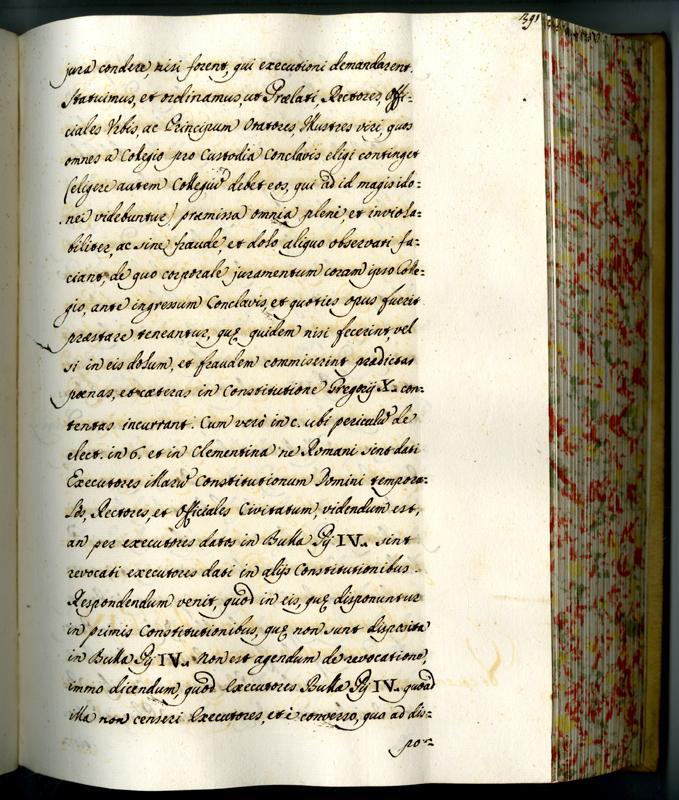 391
jura condere, nisi forent, qui executioni demandarent.
Statuimus, et ordinamus, ut Prælati, Rectores, Offi=
ciales Urbis, ac Principum Oratores, Illustres viri, quos
omnes a Collegio pro Custodia Conclavis eligi continget
(eligere autem Collegiũ debet eos, qui ad id magis ido=
nei videbuntur) præmissa omnia plenè et inviola=
biliter, ac sine fraude et dolo aliquo observari fa=
ciant, de quo corporale juramentum coram ipso Colle=
gio, ante ingressum Conclavis, et quoties opus fuerit
præstare teneantur, quę quidem nisi fecerint, vel
si in eis dolum, et fraudem commiserint prædictas
pœnas, et cæteras in Constitutione Gregorij X. con=
tentas incurrant. Cum verò in c. ubi periculũ de
elect. in 6. et in Clementina ne Romani sint dati
Executores illarũ Constitutionum Domini tempora=
les, Rectores, et Officiales Civitatum, videndum est,
an per executores datos in Bulla Pij IV. sint
revocati executores dati in alijs Constitutionibus.
Respondendum venit, quòd in eis, quę disponuntur
in primis Constitutionibus, quę non sunt disposita
in Bulla Pij IV. non est agendum de revocatione,
immo dicendum, quod Executores Bullæ Pij IV. quoad
illa non censeri Executores, et è converso, quo ad dis=
po=